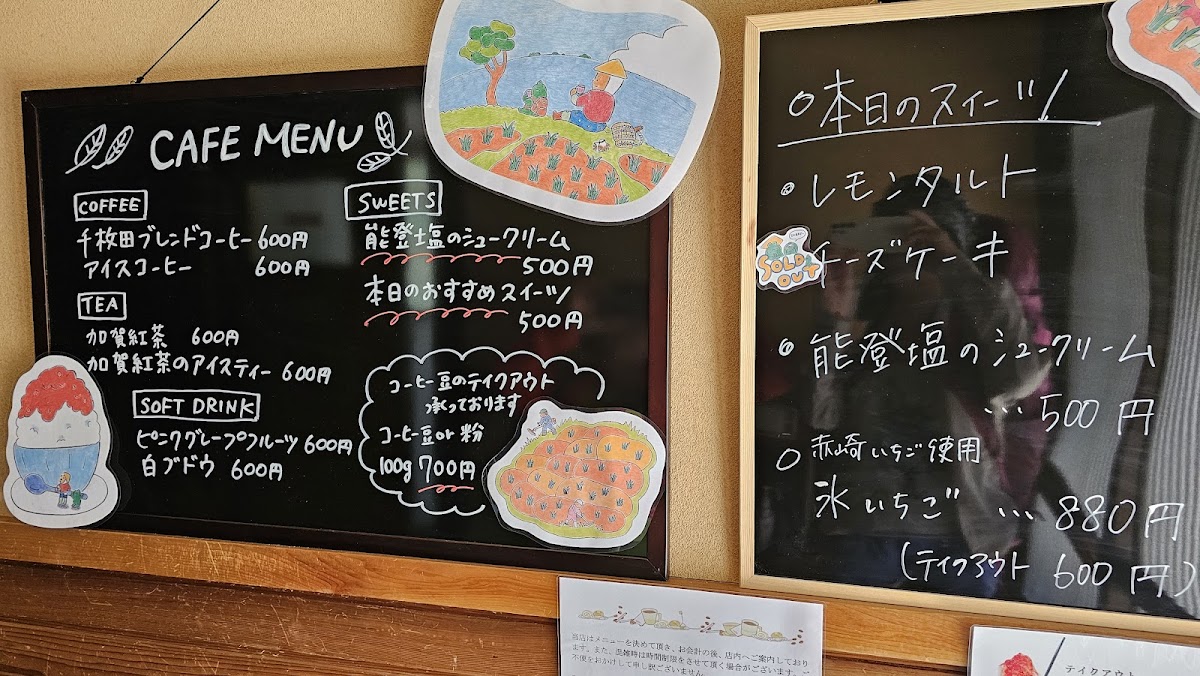 CAFE MENU
COFFEE
千枚田ブレンドコーヒー 600円
アイスコーヒー 600円
TEA
加賀紅茶 600円
加賀紅茶のアイスティー 600円
SOFT DRINK
ピンクグレープフルーツ 600円
白ブドウ 600円
SWEETS
能登塩のシュークリーム
500円
本日のおすすめスイーツ
500円
コーヒー豆のテイクアウト
承っております
コーヒー豆or粉
100g 700円
○本日のスイーツ
・レモンタルト
SOLD OUT
チーズケーキ
・能登塩のシュークリーム
… 500円
○赤崎いちご使用
氷いちご … 880円
(テイクアウト 600円)
当店はメニューを決めて頂き、お会計の後、店内へご案内しており
ます。また、混雑時は時間制限をさせて頂く場合がございます。ご
不便をおかけして申し訳ございません
テイクアウト